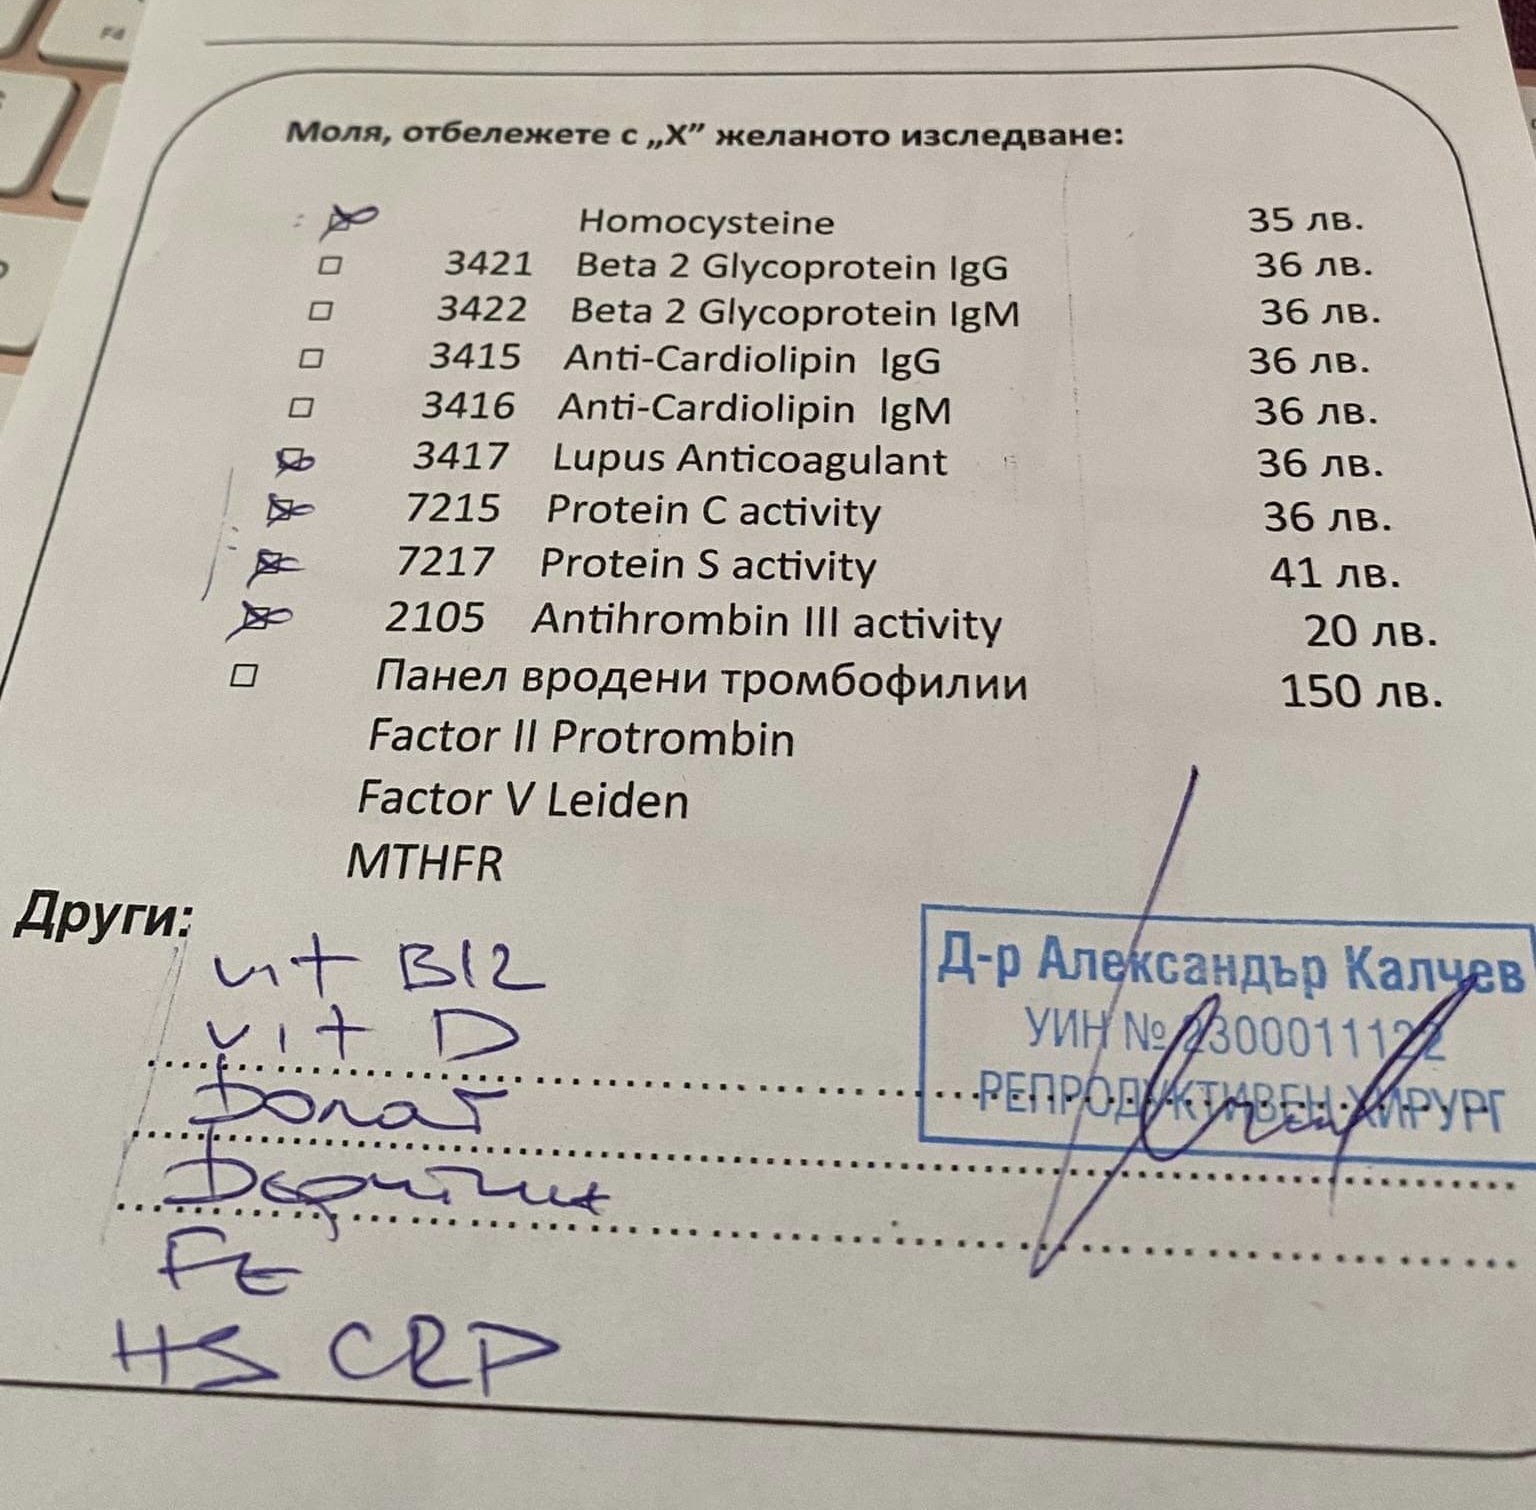 Моля, отбележете с „Х” желаното изследване:
Homocysteine 35 лв.
3421 Beta 2 Glycoprotein IgG 36 лв.
3422 Beta 2 Glycoprotein IgM 36 лв.
3415 Anti-Cardiolipin IgG 36 лв.
3416 Anti-Cardiolipin IgM 36 лв.
3417 Lupus Anticoagulant 36 лв.
7215 Protein C activity 36 лв.
7217 Protein S activity 41 лв.
2105 Antihrombin III activity 20 лв.
Панел вродени тромбофилии 150 лв.
Factor II Protrombin
Factor V Leiden
MTHFR
Други:
vit B12
vit D
Фолат
Феритин
FE
HS CRP
Д-р Александър Калчев
УИН № 2300011122
РЕПРОДУКТИВЕН ХИРУРГ